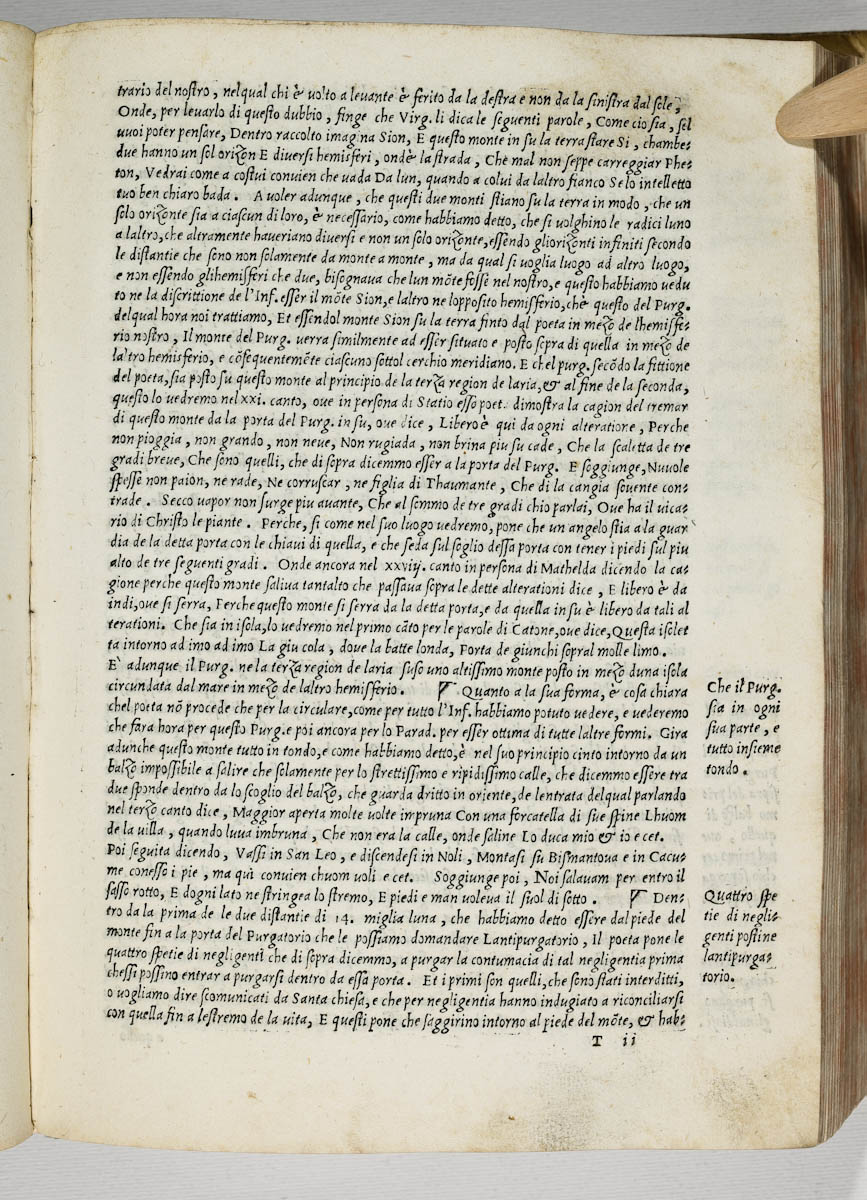 trario del nostro, nelqual chi è uolto a leuante è ferito da la destra e non da la sinistra dal sole,
Onde, per leuarlo di questo dubbio, finge che Virg. li dica le seguenti parole, Come cio sia, sel
uuoi poter pensare, Dentro raccolto imagina Sion, E questo monte in su la terra stare Si, chambe-
due hanno un sol orizon E diuersi hemisferi, ond'è la strada, Che mal non seppe carreggiar Phe-
ton, Vedrai come a costui conuien che uada Da lun, quando a colui da laltro fianco Se lo intelletto
tuo ben chiaro bada. A uoler adunque, che questi due monti stiano su la terra in modo, che un
solo orizonte sia a ciascun di loro, è necessario, come habbiamo detto, che si uolghino le radici luno
a laltro, che altramente haueriano diuersi e non un solo orizonte, essendo gliorizonti infiniti secondo
le distantie che sono non solamente da monte a monte, ma da qual si uoglia luogo ad altro luogo,
e non essendo glihemisferi che due, bisognaua che lun mōte fosse nel nostro, e questo habbiamo uedu
to ne la discrittione de l'Inf. esser il mōte Sion, e laltro ne lopposito hemisferio, ch'è questo del Purg.
delqual hora noi trattiamo, Et essendol monte Sion su la terra finto dal poeta in mezo de lhemisfe-
rio nostro, Il monte del Purg. uerra similmente ad esser situato e posto sepra di quella in mezo de
laltro hemisferio, e cōsequentemēte ciascuno sottol cerchio meridiano. E chel purg. secōdo la fittione
del poeta, sia posto su questo monte al principio de la terza region de laria, & al fine de la seconda,
questo lo uedremo nel xxi. canto, oue in persona di Statio esso poet. dimostra la cagion del tremar
di questo monte da la porta del Purg. in su, oue dice, Libero è qui da ogni alteratione, Perche
non pioggia, non grando, non neue, Non rugiada, non brina piu su cade, Che la scaletta de tre
gradi breue, Che sono quelli, che di sopra dicemmo esser a la porta del Purg. E soggiunge, Nuuole
spesse non paion, ne rade, Ne corruscar, ne figlia di Thaumante, Che di la cangia souente con-
trade. Secco uapor non surge piu auante, Che al sommo de tre gradi chio parlai, Oue ha il uica-
rio di Christo le piante. Perche, si come nel suo luogo uedremo, pone che un angelo stia a la guar
dia de la detta porta con le chiaui di quella, e che seda sul soglio dessa porta con tener i piedi sul piu
alto de tre seguenti gradi. Onde ancora nel xxviij. canto in persona di Mathelda dicendo la ca-
gione perche questo monte saliua tantalto che passaua sopra le dette alterationi dice, E libero è da
indi, oue si serra, Perche questo monte si serra da la detta porta, e da quella in su è libero da tali al
terationi. Che sia in isola, lo uedremo nel primo cāto per le parole di Catone, oue dice, Questa isolet
ta intorno ad imo ad imo La giu cola, doue la batte londa, Porta de giunchi sopral molle limo.
E' adunque il Purg. ne la terza region de laria suso uno altissimo monte posto in mezo duna isola
circundata dal mare in mezo de laltro hemisferio. Quanto a la sua forma, è cosa chiara
chel poeta nō procede che per la circulare, come per tutto l'Inf. habbiamo potuto uedere, e uederemo
che fara hora per questo Purg. e poi ancora per lo Parad. per esser ottima di tutte laltre formi. Gira
adunche questo monte tutto in tondo, e come habbiamo detto, è nel suo principio cinto intorno da un
balzo impossibile a salire che solamente per lo strettissimo e ripidissimo calle, che dicemmo essere tra
due sponde dentro da lo scoglio del balzo, che guarda dritto in oriente, de lentrata delqual parlando
nel terzo canto dice, Maggior aperta molte uolte impruna Con una forcatella di sue spine Lhuom
de la uilla, quando luua imbruna, Che non era la calle, onde saline Lo duca mio & io e cet.
Poi seguita dicendo, Vassi in San Leo, e discendesi in Noli, Montasi su Bismantoua e in Cacu-
me conesso i pie, ma qui conuien chuom uoli e cet. Soggiunge poi, Noi salauam per entro il
sasso rotto, E dogni lato ne stringea lo stremo, E piedi e man uoleua il suol di sotto. Den-
tro da la prima de le due distantie di 14. miglia luna, che habbiamo detto essere dal piede del
monte fin a la porta del Purgatorio che le possiamo domandare Lantipurgatorio, Il poeta pone le
quattro spetie di negligenti che di sopra dicemmo, a purgar la contumacia di tal negligentia prima
chessi possino entrar a purgarsi dentro da essa porta. Et i primi son quelli, che sono stati interditti,
o uogliamo dire scomunicati da Santa chiesa, e che per negligentia hanno indugiato a riconciliarsi
con quella fin a lestremo de la uita, E questi pone che saggirino intorno al piede del mōte, & hab-
T ii
Che il Purg.
sia in ogni
sua parte, e
tutto insieme
tondo.
Quattro spe
tie di negli-
genti postine
lantipurga-
torio.